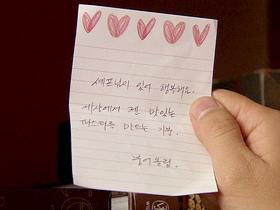 셰프님이 있어 행복해요.
세상에서 젤 맛있는
파스타를 만드는 기분.